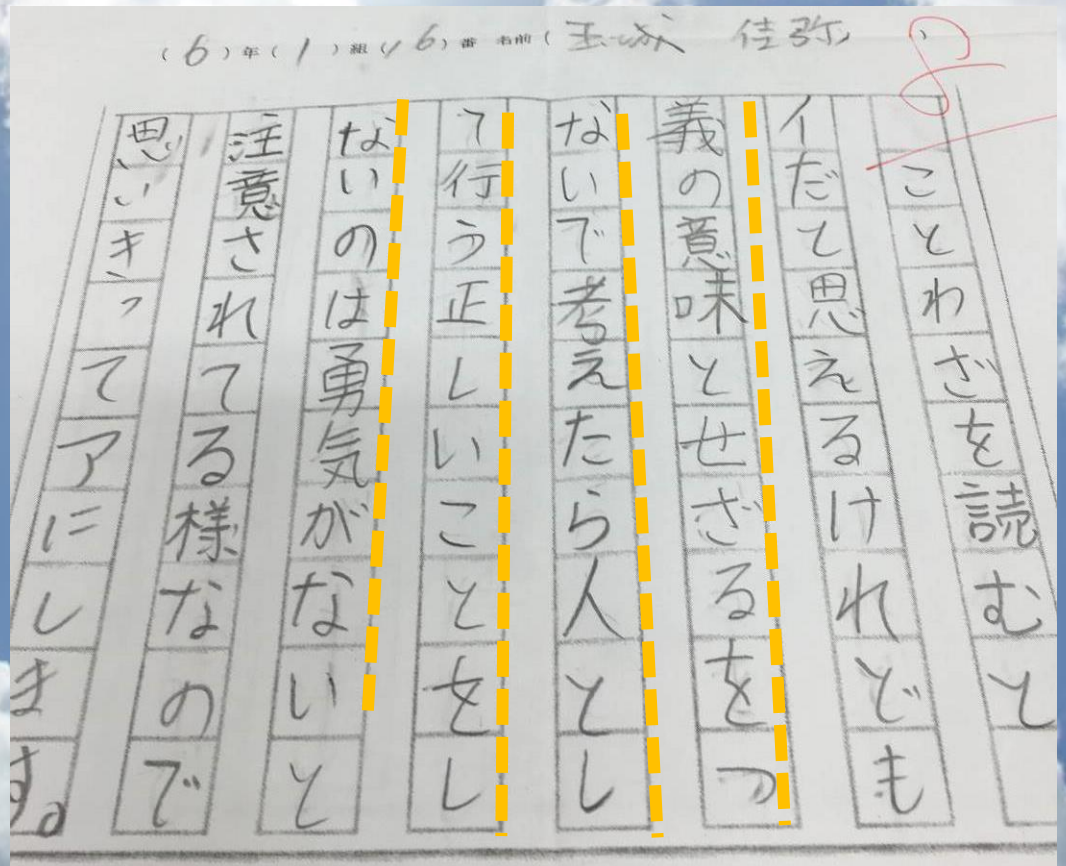 (6)年(1)組(16)番 名前(玉城 佳弥)
ことわざを読むと
イだと思えるけれども
義の意味とせざるをつ
ないで考えたら人とし
て行う正しいことをし
ないのは勇気がないと
注意されてる様なので
思いきってアにします。